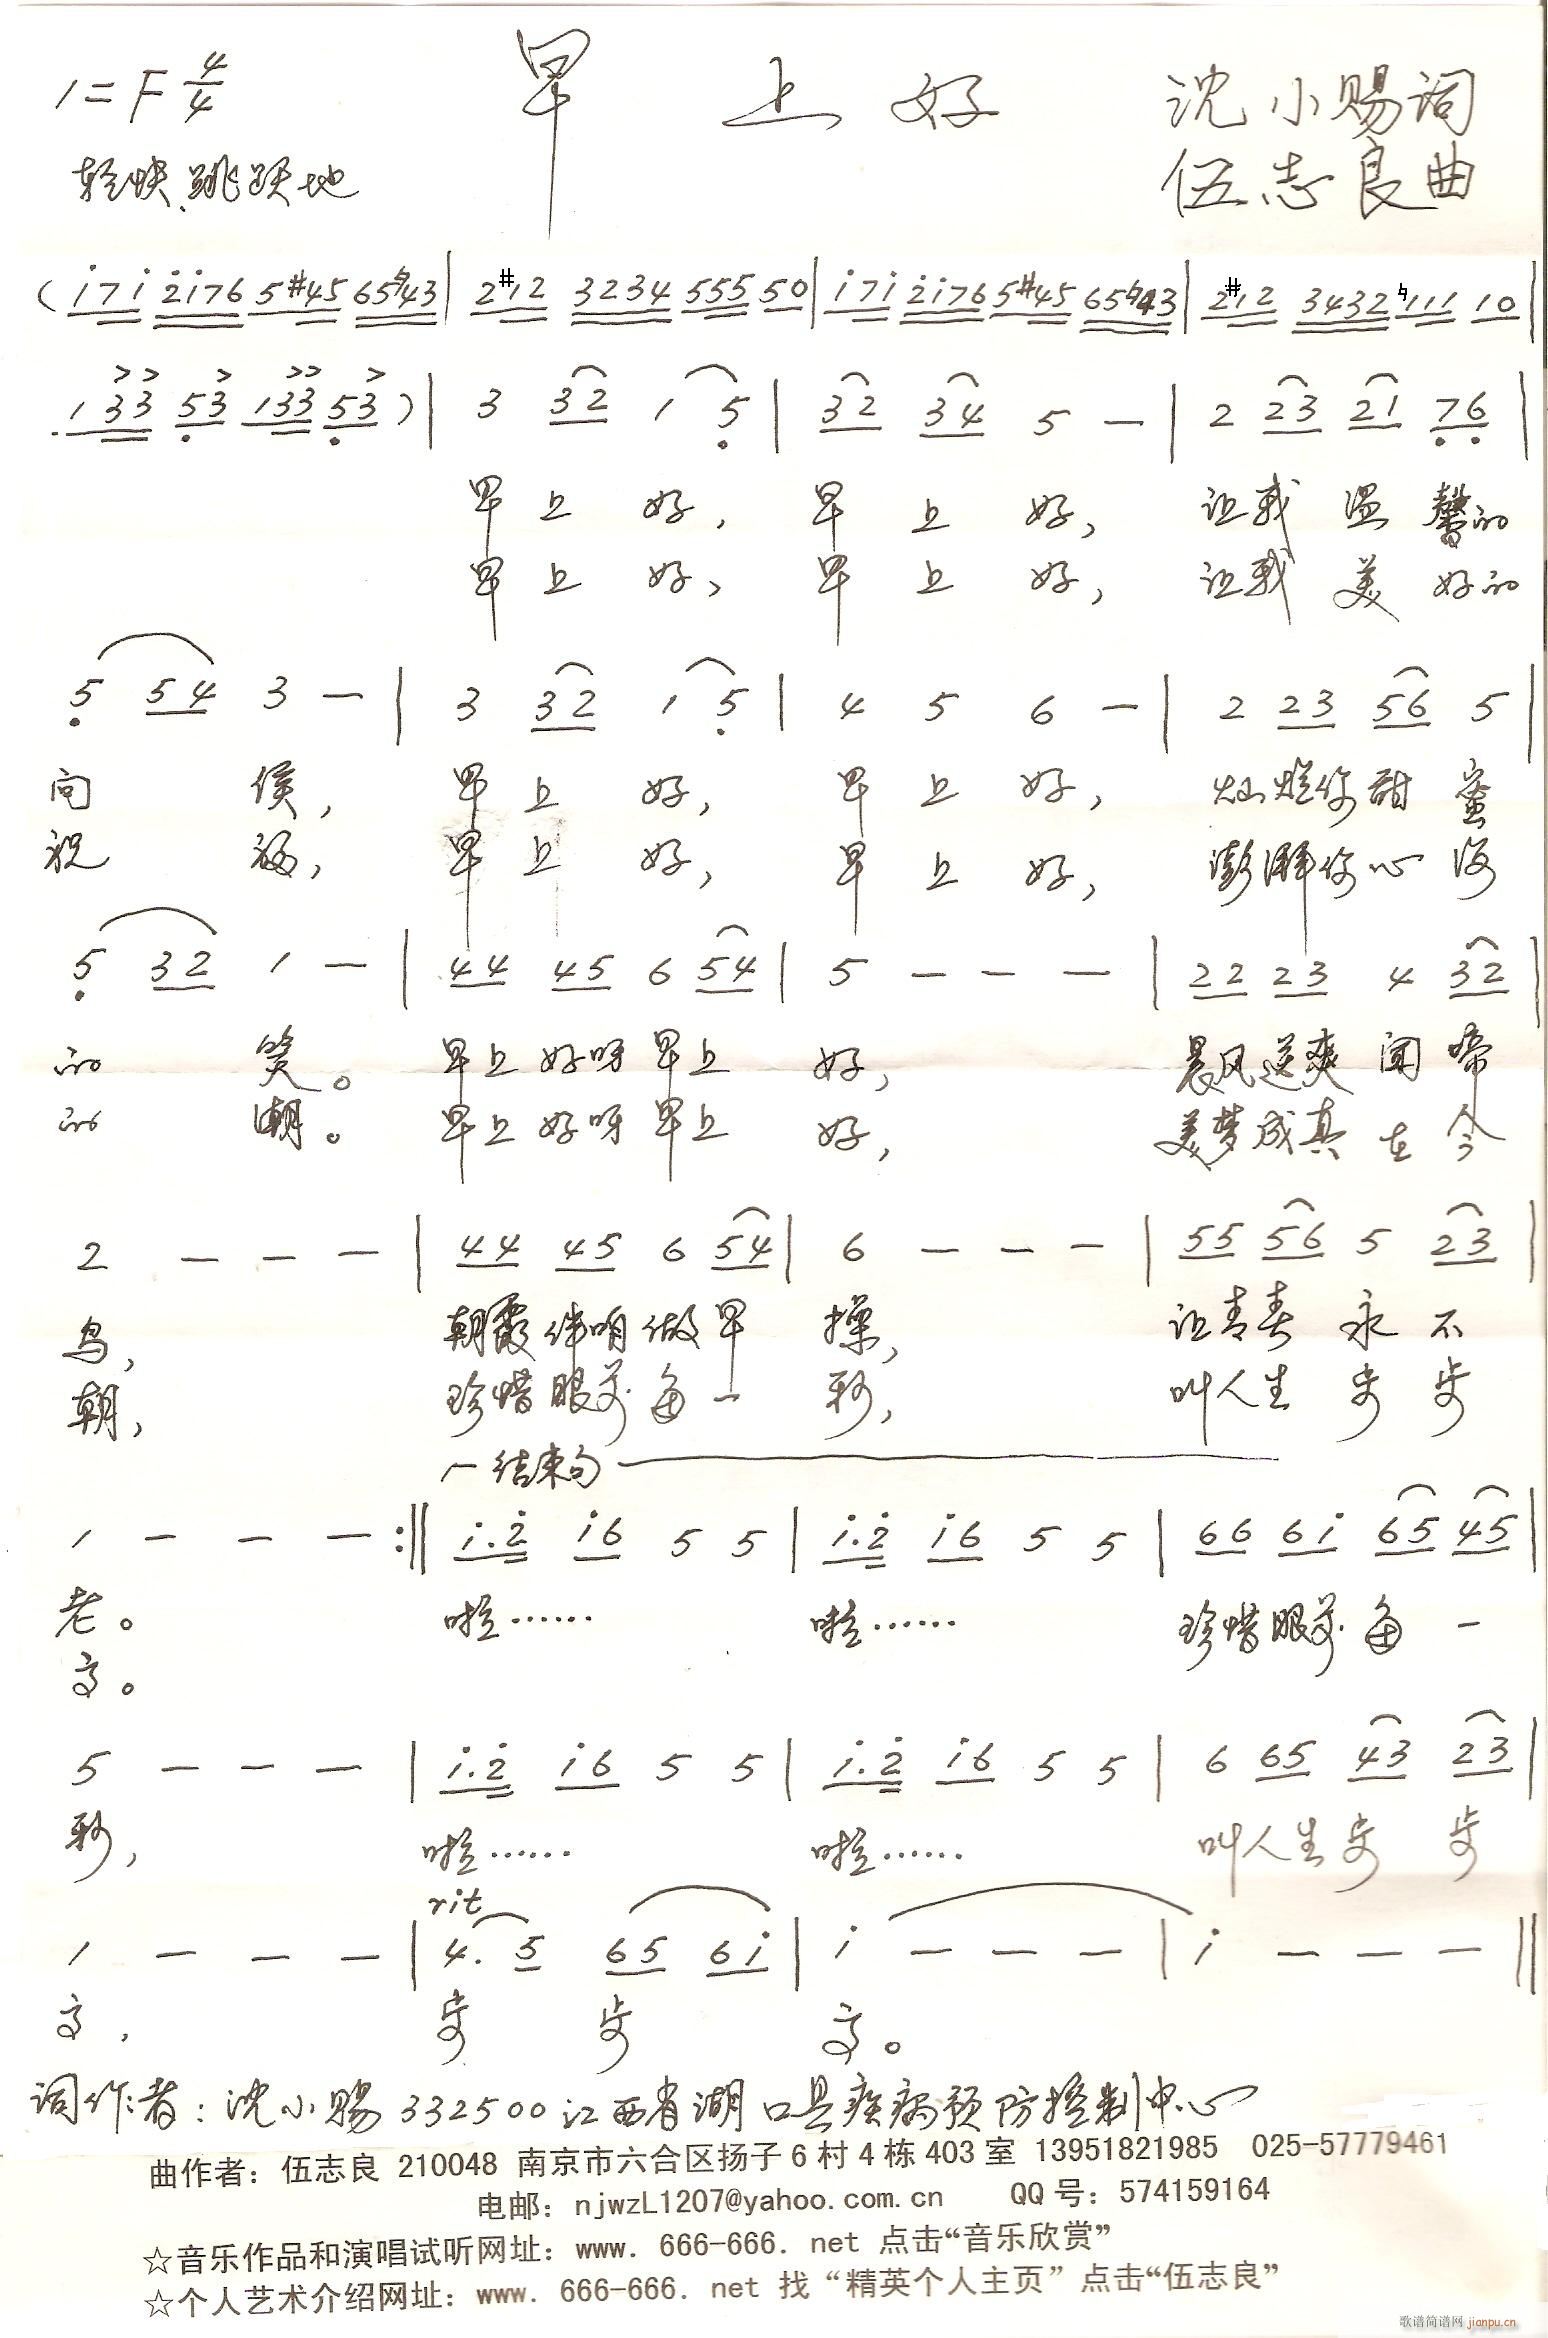 1=F 4/4 早上好 沈小赐词
轻快、跳跃地 伍志良曲
(i7i 2i76 5#45 65♮43 | 2#12 3234 555 50 | i7i 2i76 5#45 65♮43 | 2#12 3432 ♮111 10 |
133 53 133 53) | 3 32 1 5 | 32 34 5 — | 2 23 21 76 |
早上好, 早上好, 让我温馨的
早上好, 早上好, 让我美好的
5 54 3 — | 3 32 1 5 | 4 5 6 — | 2 23 56 5 |
问候, 早上好, 早上好, 灿烂你甜蜜
祝福, 早上好, 早上好, 澎湃你心海
5 32 1 — | 44 45 6 54 | 5 — — — | 22 23 4 32 |
的笑。 早上好呀早上好, 晨风送爽闻啼
的潮。 早上好呀早上好, 美梦成真在今
2 — — — | 44 45 6 54 | 6 — — — | 55 56 5 23 |
鸟, 朝霞伴咱做早操, 让青春永不
朝, 珍惜眼前每一秒, 叫人生步步
结束句
1 — — — :‖ i.2 i6 5 5 | i.2 i6 5 5 | 66 6i 65 45 |
老。 啦…… 啦…… 珍惜眼前每一
高。
5 — — — | i.2 i6 5 5 | i.2 i6 5 5 | 6 65 43 23 |
秒, 啦…… 啦…… 叫人生步步
rit
1 — — — | 4. 5 65 6i | i — — — | i — — — ‖
高, 步步高。
词作者:沈小赐 332500 江西省湖口县疾病预防控制中心
曲作者：伍志良 210048 南京市六合区扬子6村4栋403室 13951821985 025-57779461
电邮：njwzL1207@yahoo.com.cn QQ号：574159164
☆音乐作品和演唱试听网址：www. 666-666. net 点击“音乐欣赏”
☆个人艺术介绍网址：www. 666-666. net 找“精英个人主页”点击“伍志良”
歌谱简谱网 jianpu.cn